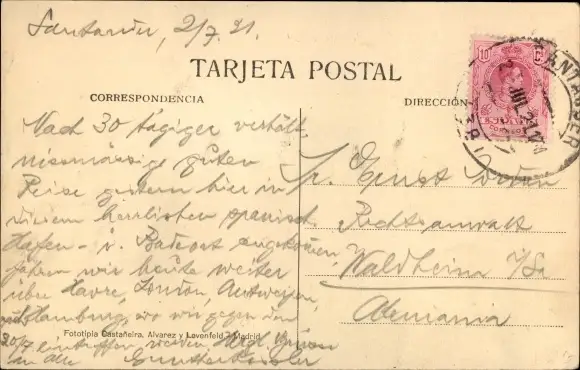 Santander, 2/7.21.
TARJETA POSTAL
CORRESPONDENCIA
DIRECCIÓN
10 C
SANTANDER
2 JUL 21
CORREOS
Nach 30 tägiger verhält-
nissmässig guten
Reise gestern hier in
diesem herrlichen spanisch.
Hafen- u. Badeort angekommen,
fahren wir heute weiter
über Havre, London, Antwerpen,
nach Hamburg, wo wir gegen den
20/7 eintreffen werden. Herzl. Grüsse
an alle
Hr. Ernst
Rechtsanwalt
Waldheim i/Sa
Alemania
Fototipia Castañeira, Alvarez y Levenfeld - Madrid